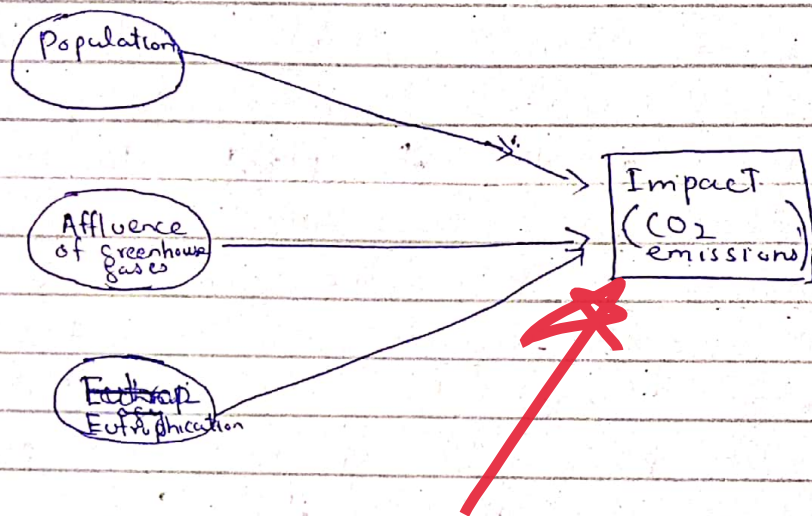 Population
Affluence
of greenhouse
gases
Eutrophication
Impact
(CO2
emissions)